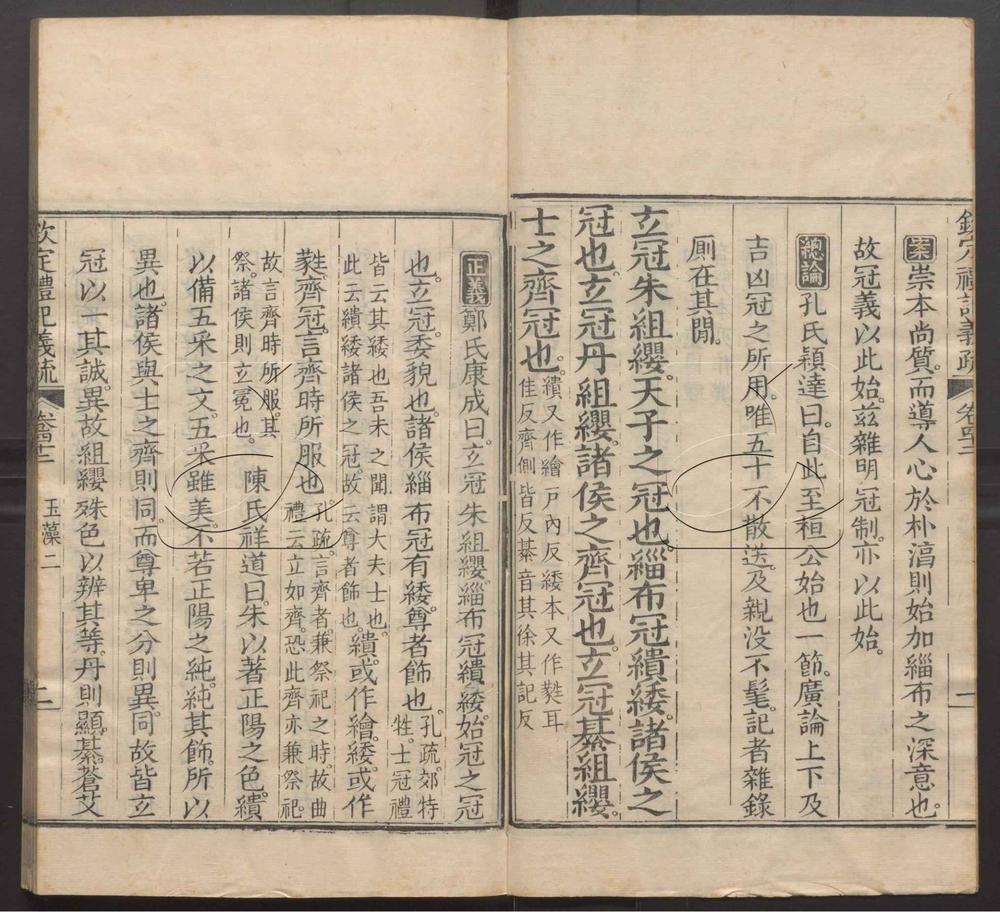 欽定禮記義疏 卷四十二 一
案崇本尚質而導人心於朴淳則始加緇布之深意也
故冠義以此始茲雜明冠制亦以此始
總論孔氏穎達曰自此至桓公始也一節廣論上下及
吉凶冠之所用唯五十不散送及親没不髦記者雜錄
厠在其閒
玄冠朱組纓天子之冠也緇布冠繢緌諸侯之
冠也玄冠丹組纓諸侯之齊冠也玄冠綦組纓
士之齊冠也繢又作繪戶內反緌本又作甤耳
佳反齊側皆反綦音其徐其記反
正義鄭氏康成曰玄冠朱組纓緇布冠繢緌始冠之冠
也玄冠委貌也諸侯緇布冠有緌尊者飾也孔疏郊特
牲士冠禮
皆云其緌也吾未之聞謂大夫士也
此云繢緌諸侯之冠故云尊者飾也繢或作繪緌或作
甤齊冠言齊時所服也孔疏言齊者兼祭祀之時故曲
禮云立如齊恐此齊亦兼祭祀
故言齊時所服其
祭諸侯則玄冕也陳氏祥道曰朱以著正陽之色繢
以備五采之文五采雖美不若正陽之純純其飾所以
異也諸侯與士之齊則同而尊卑之分則異同故皆玄
冠以一其誠異故組纓殊色以辨其等丹則顯綦蒼艾
欽定禮記義疏 卷四十二 玉藻二 二